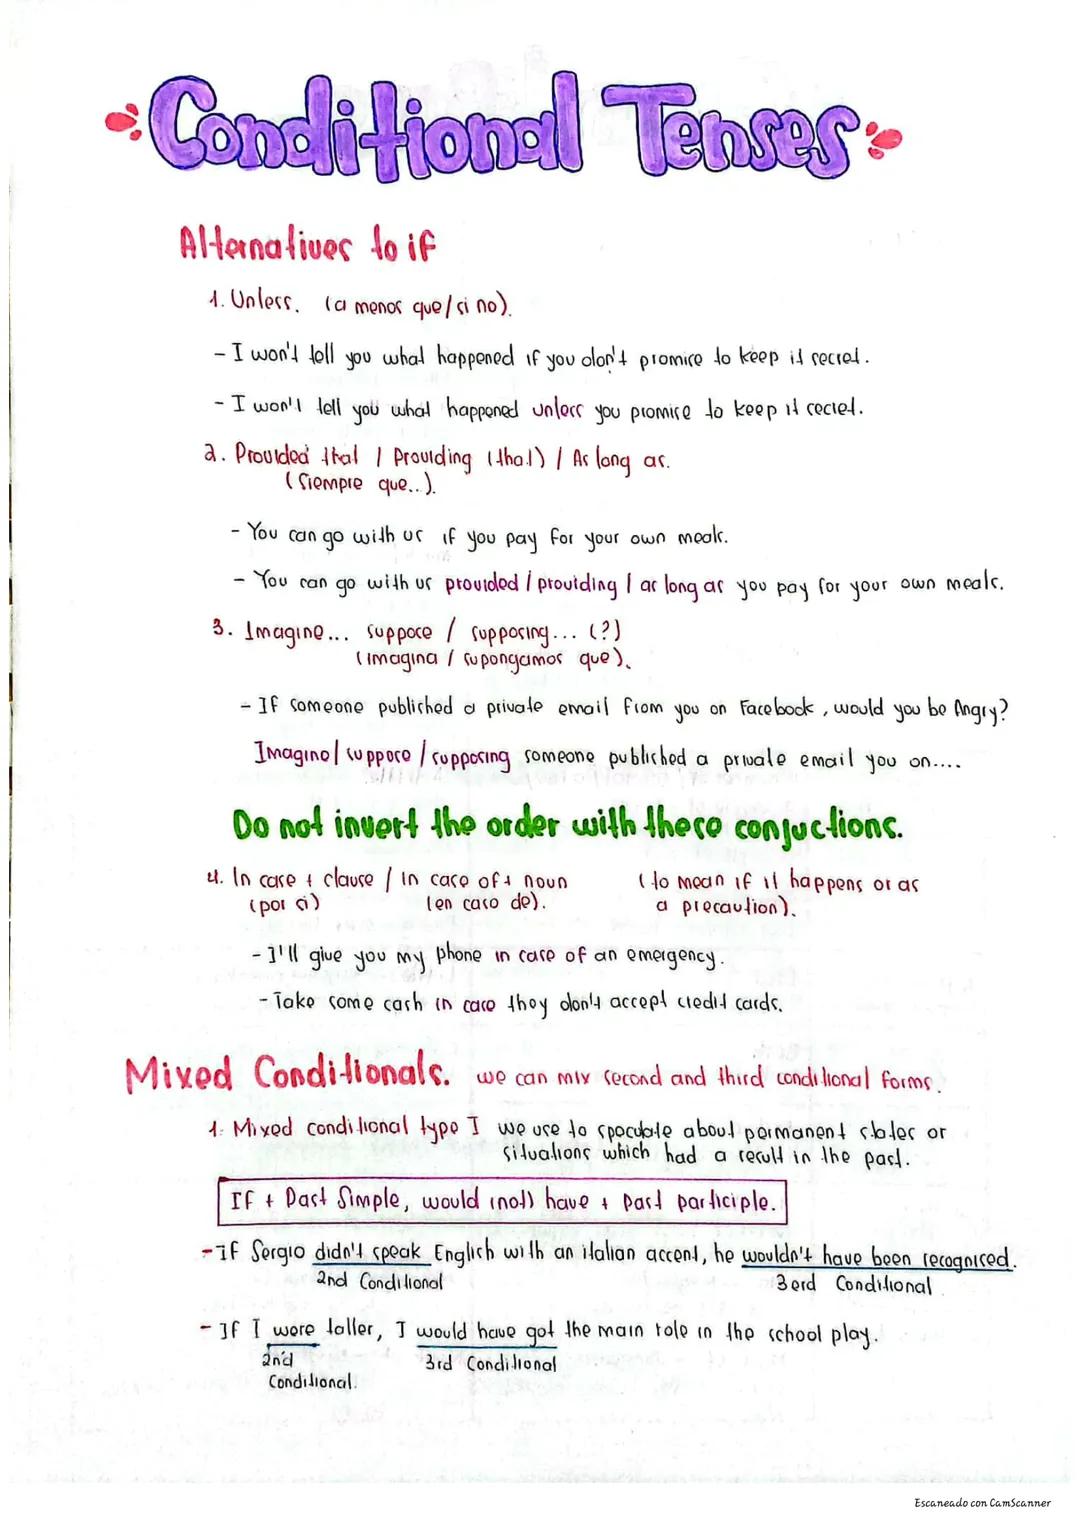 Conditional Tenses
Alternatives to if
1. Unless. (a menos que/si no).
- I won't tell you what happened if you don't promise to keep it secret.
- I won't tell you what happened unless you promise to keep it secret.
2. Provided that / Providing (that) / As long as.
(Siempre que..).
- You can go with us if you pay for your own meals.
- You can go with us provided / providing / as long as you pay for your own meals.
3. Imagine... suppose / supposing... (?)
(imagina / supongamos que).
- If someone published a private email from you on Facebook, would you be Angry?
Imagine / suppose / supposing someone published a private email you on....
Do not invert the order with these conjuctions.
4. In case + clause / in case of + noun (to mean if it happens or as
(por si) (en caso de). a precaution).
- I'll give you my phone in case of an emergency.
- Take some cash in case they don't accept credit cards.
Mixed Conditionals. we can mix second and third conditional forms.
1. Mixed conditional type I we use to spoculate about permanent states or
situations which had a result in the past.
If + Past Simple, would (not) have + past participle.
- If Sergio didn't speak English with an italian accent, he wouldn't have been recognised.
2nd Conditional 3erd Conditional
- If I were taller, I would have got the main role in the school play.
2nd 3rd Conditional
Conditional.
Escaneado con CamScanner